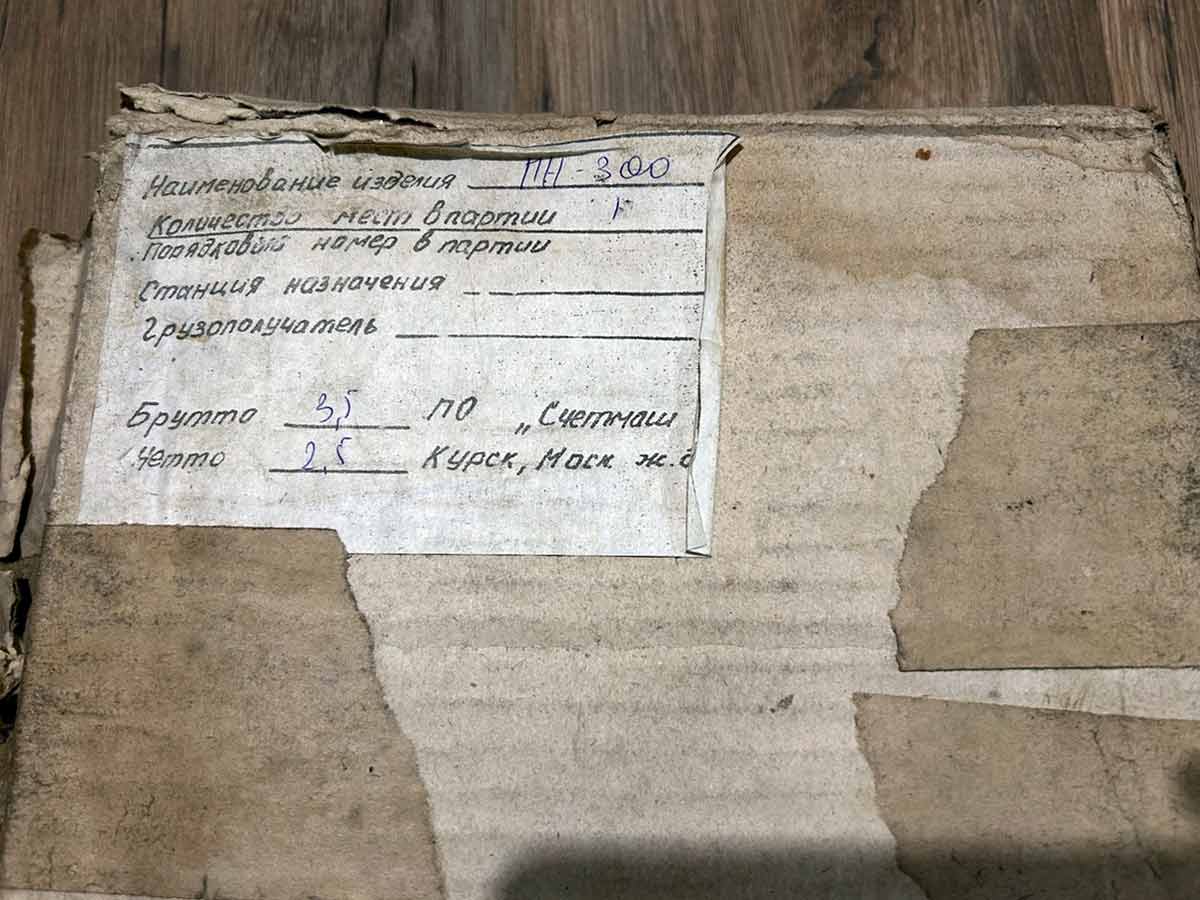 Наименование изделия ПН-300
Количество мест в партии 1
Порядковый номер в партии
Станция назначения
Грузополучатель
Брутто 3,5 ПО „Счетмаш
Нетто 2,5 Курск, Моск ж.д